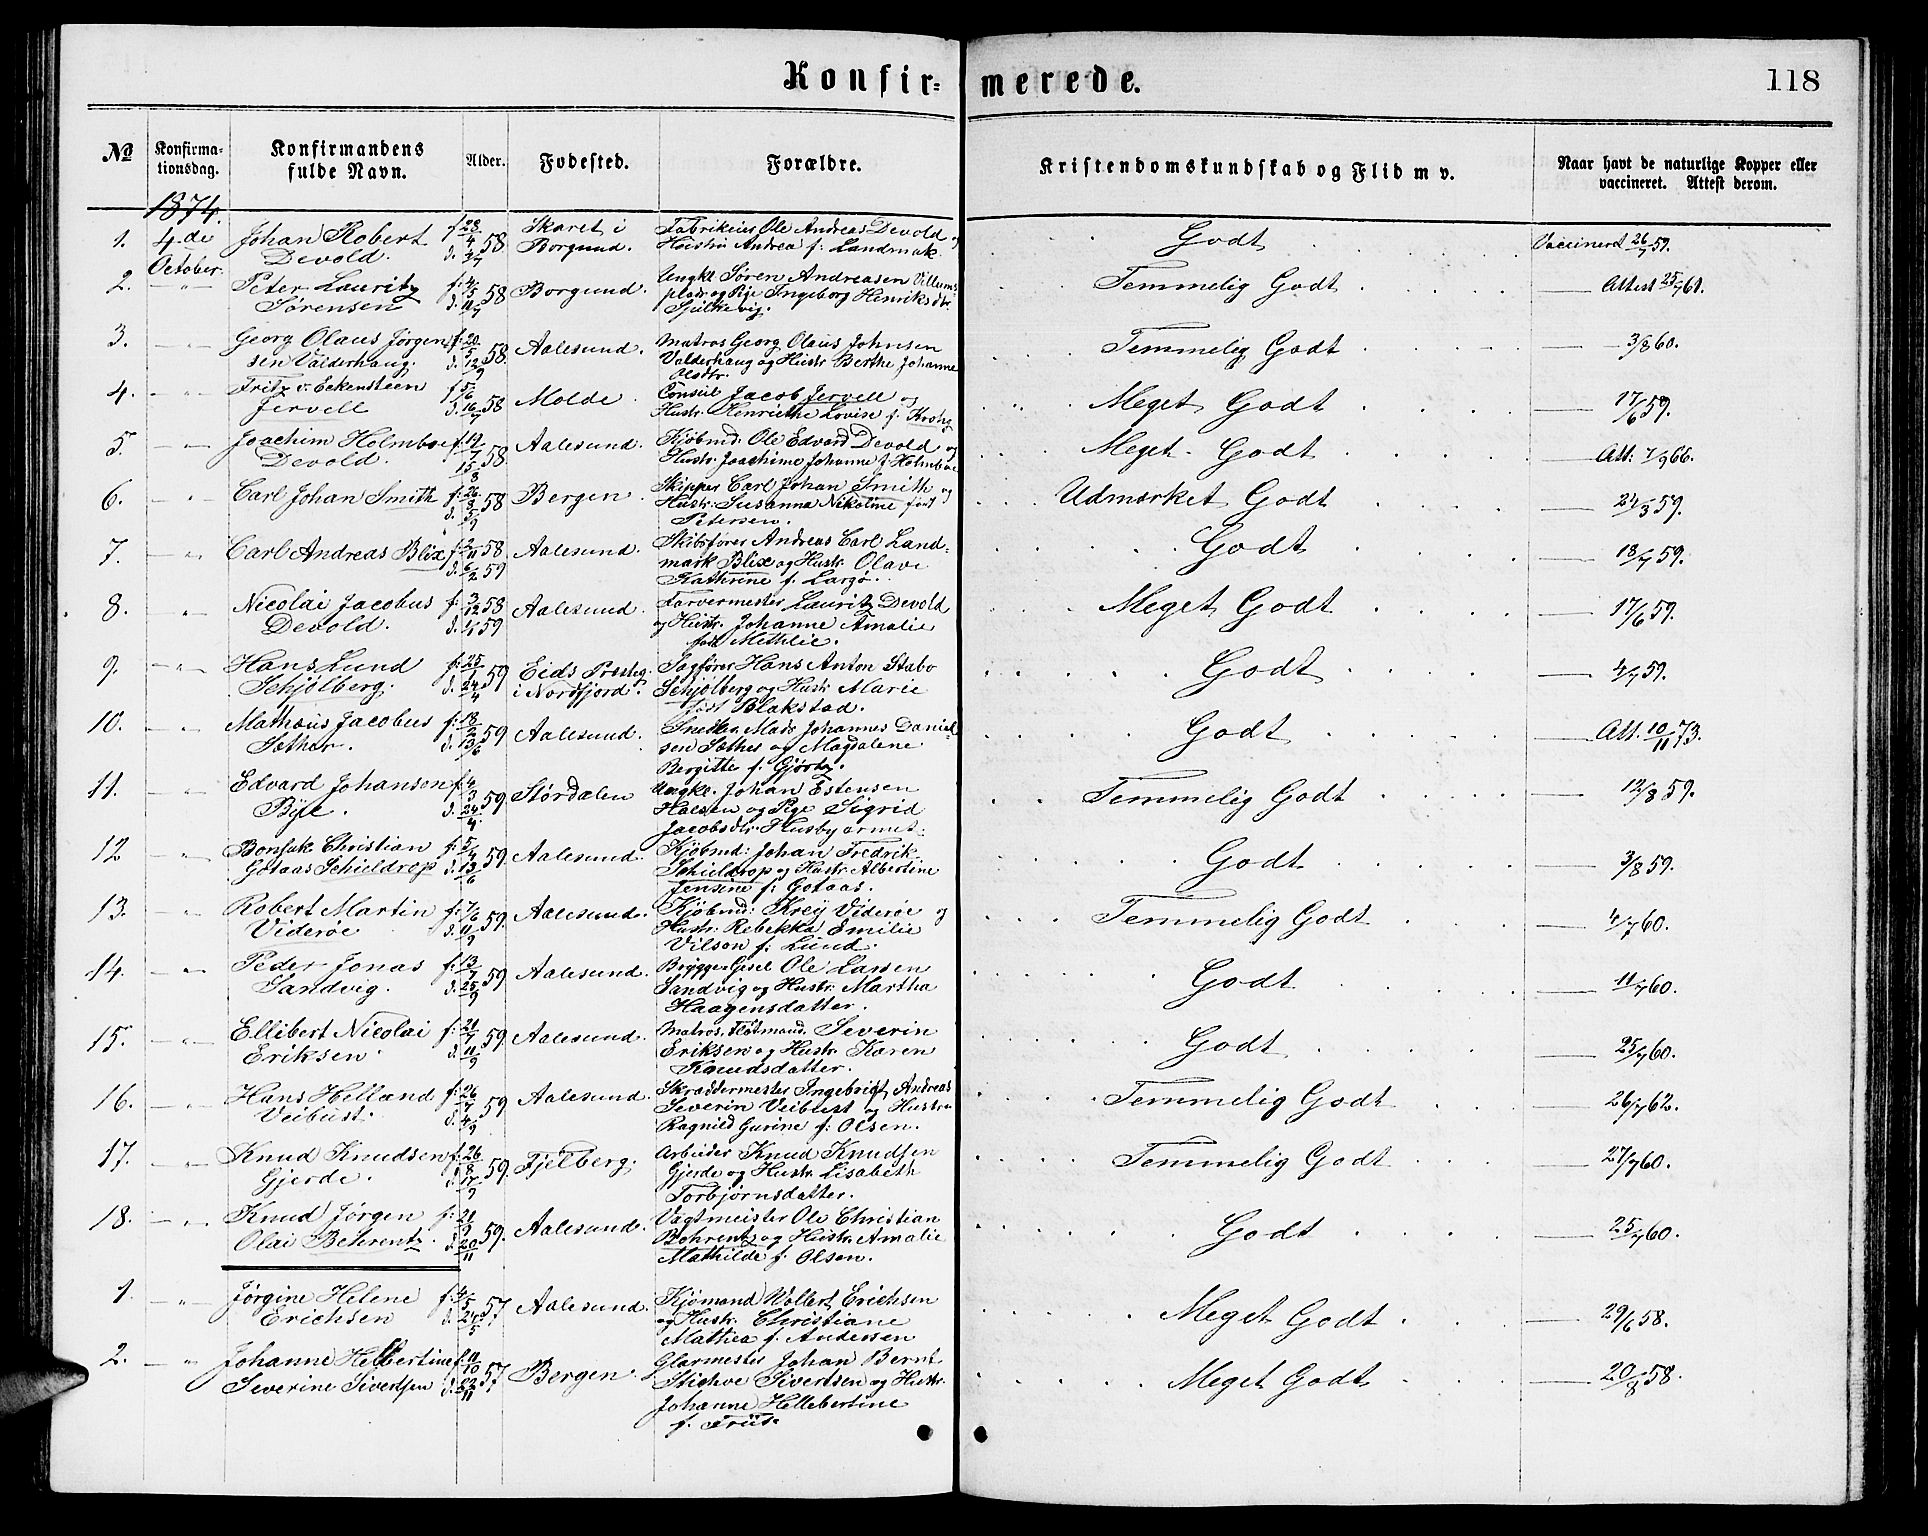 Konfir= merede. 118
No Konfirma-tionsdag. Konfirmandens fulde Navn. Alder. Fødested. Forældre. Kristendomskundskab og Flid m v. Naar havt de naturlige Kopper eller vaccineret. Attest derom.
1874.
1. 4de October. Johan Robert Devold. f. 23/4 d. 58 Skaret i Borgund. Fabrikeier Ole Andreas Devold og Hustru Andrea f. Landmark. Godt Vaccineret 26/7 59.
2. — " — Peter Lauritz Sørensen f. 4/5 d. 11/7 58 Borgund. Ungkl. Søren Andreasen og Pige Ingeborg Henriksdtr. Temmelig Godt — Attest 25/7 61.
3. — " — Georg Olaus Jørgensen Valderhaug. f. 20/5 d. 12/9 58 Aalesund. Matros Georg Olaus Johnsen Valderhaug og Hustr. Berthe Johanne Olsdtr. Temmelig Godt — 3/8 60.
4. — " — Fritz v. Eckensteen Jervell f. 5/6 d. 16/7 58 Molde. Consul Jacob Jervell og Hustr. Henriethe Lovise f. Meget Godt — 17/6 59.
5. — " — Joachim Holmboe Devold. f. 14/7 15/8 58 Aalesund. Kjøbmd: Ole Edvard Devold og Hustr. Joachime Johanne f. Holmboe Meget Godt — Att. 7/9 66.
6. — " — Carl Johan Smith f. 26/8 d. 5/9 58 Bergen. Skipper Carl Johan Smith og Hustr. Susanna Nikoline født Petersen. Udmærket Godt — 24/3 59.
7. " Carl Andreas Blix f. 2/11 58 d. 6/2 59 Aalesund. Skibsfører Andreas Carl Landmark Blix og Hustr. Olave Kathrine f. Largo. Godt — 18/7 59.
8. " Nicolai Jacobus Devold. f. 3/12 58 d. 59 Aalesund. Farvermester Lauritz Devold og Hustr. Johanne Amalie født Methlie. Meget Godt — 17/6 59.
9. — " — Hans Lund Schjølberg. f. 25/1 d. 24/4 59 Eids Præsteg. i Nordfjord. Sagfører Hans Anton Stabo Schjølberg og Hustr. Marie født Blakstad. Godt — 4/7 59.
10. " Mathæus Jacobus Sather. f. 18/2 d. 13/6 59 Aalesund. Snedker Mads Johannes Danielsen Sather og Magdalene Bergitte f. Godt — Att. 10/11 73.
11. " Edvard Johanson Bye. f. 4/3 d. 24/4 59 Størdalen Ungkl. Johan Estensen og Pige Sigrid Jacobsdtr. Temmelig Godt — 12/8 59.
12 " Bonsak Christian Gotaas Schieldrop f. 5/4 d. 13/6 59 Aalesund. Kjøbmd: Johan Fredrik Schieldrop og Hustr. Albertine Jensine f. Gotaas. Godt — 3/8 59.
13. — " — Robert Martin Viderøe f. 7/6 d. 11/9 59. Aalesund. Kjøbmd: Krey Viderøe og Hustr. Rebekka Emilie Vilson f. Lund. Temmelig Godt — 4/7 60.
14. — " — Peder Jonas Sandvig. f. 13/7 d. 25/9 59 Aalesund. Ole Larsen Sandvig og Hustr. Martha Haagensdatter. Godt — 11/7 60.
15. — " — Ellibert Nicolai Eriksen. f. 21/7 d. 11/9 59 Aalesund. Matros, Severin Eriksen og Hustr. Karen Knudsdatter. Godt — 25/7 60.
16. — " — Hans Helland Veibust. f. 26/7 d. 4/9 59 Aalesund. Skræddermester Ingebrigt Andreas Severin Veibust og Hustru Ragnild Gurine f. Olsen. Temmelig Godt — 26/7 62.
17. " Knud Knudsen Gjerde. f. 26/8 d. 17/9 59. Fjelberg. Arbeider Knud Knudsen Gjerde og Hustr. Lisabeth Torbjørnsdatter. Temmelig Godt — 27/7 60.
18. — " — Knud Jørgen Olai Behrentz. f. 21/9 d. 20/11 59. Aalesund. Vagtmeister Ole Christian Behrentz og Hustr. Amalie Mathilde f. Olsen. Godt — 25/7 60.
1. — " — Jørgine Helene Erichsen f. 4/5 d. 24/5 57 Aalesund. Kjømand Wollert Erichsen og Hustr. Christiane Mathea f. Andersen Meget Godt — 29/6 58.
2. — " — Johanne Hellbertine Severine Sivertsen f. 11/10 d. 22/11 57 Bergen. Glarmester Johan Bernt Sivertsen og Hustr. Johanne Hellebertine f. Friis. Meget Godt — 20/8 58.